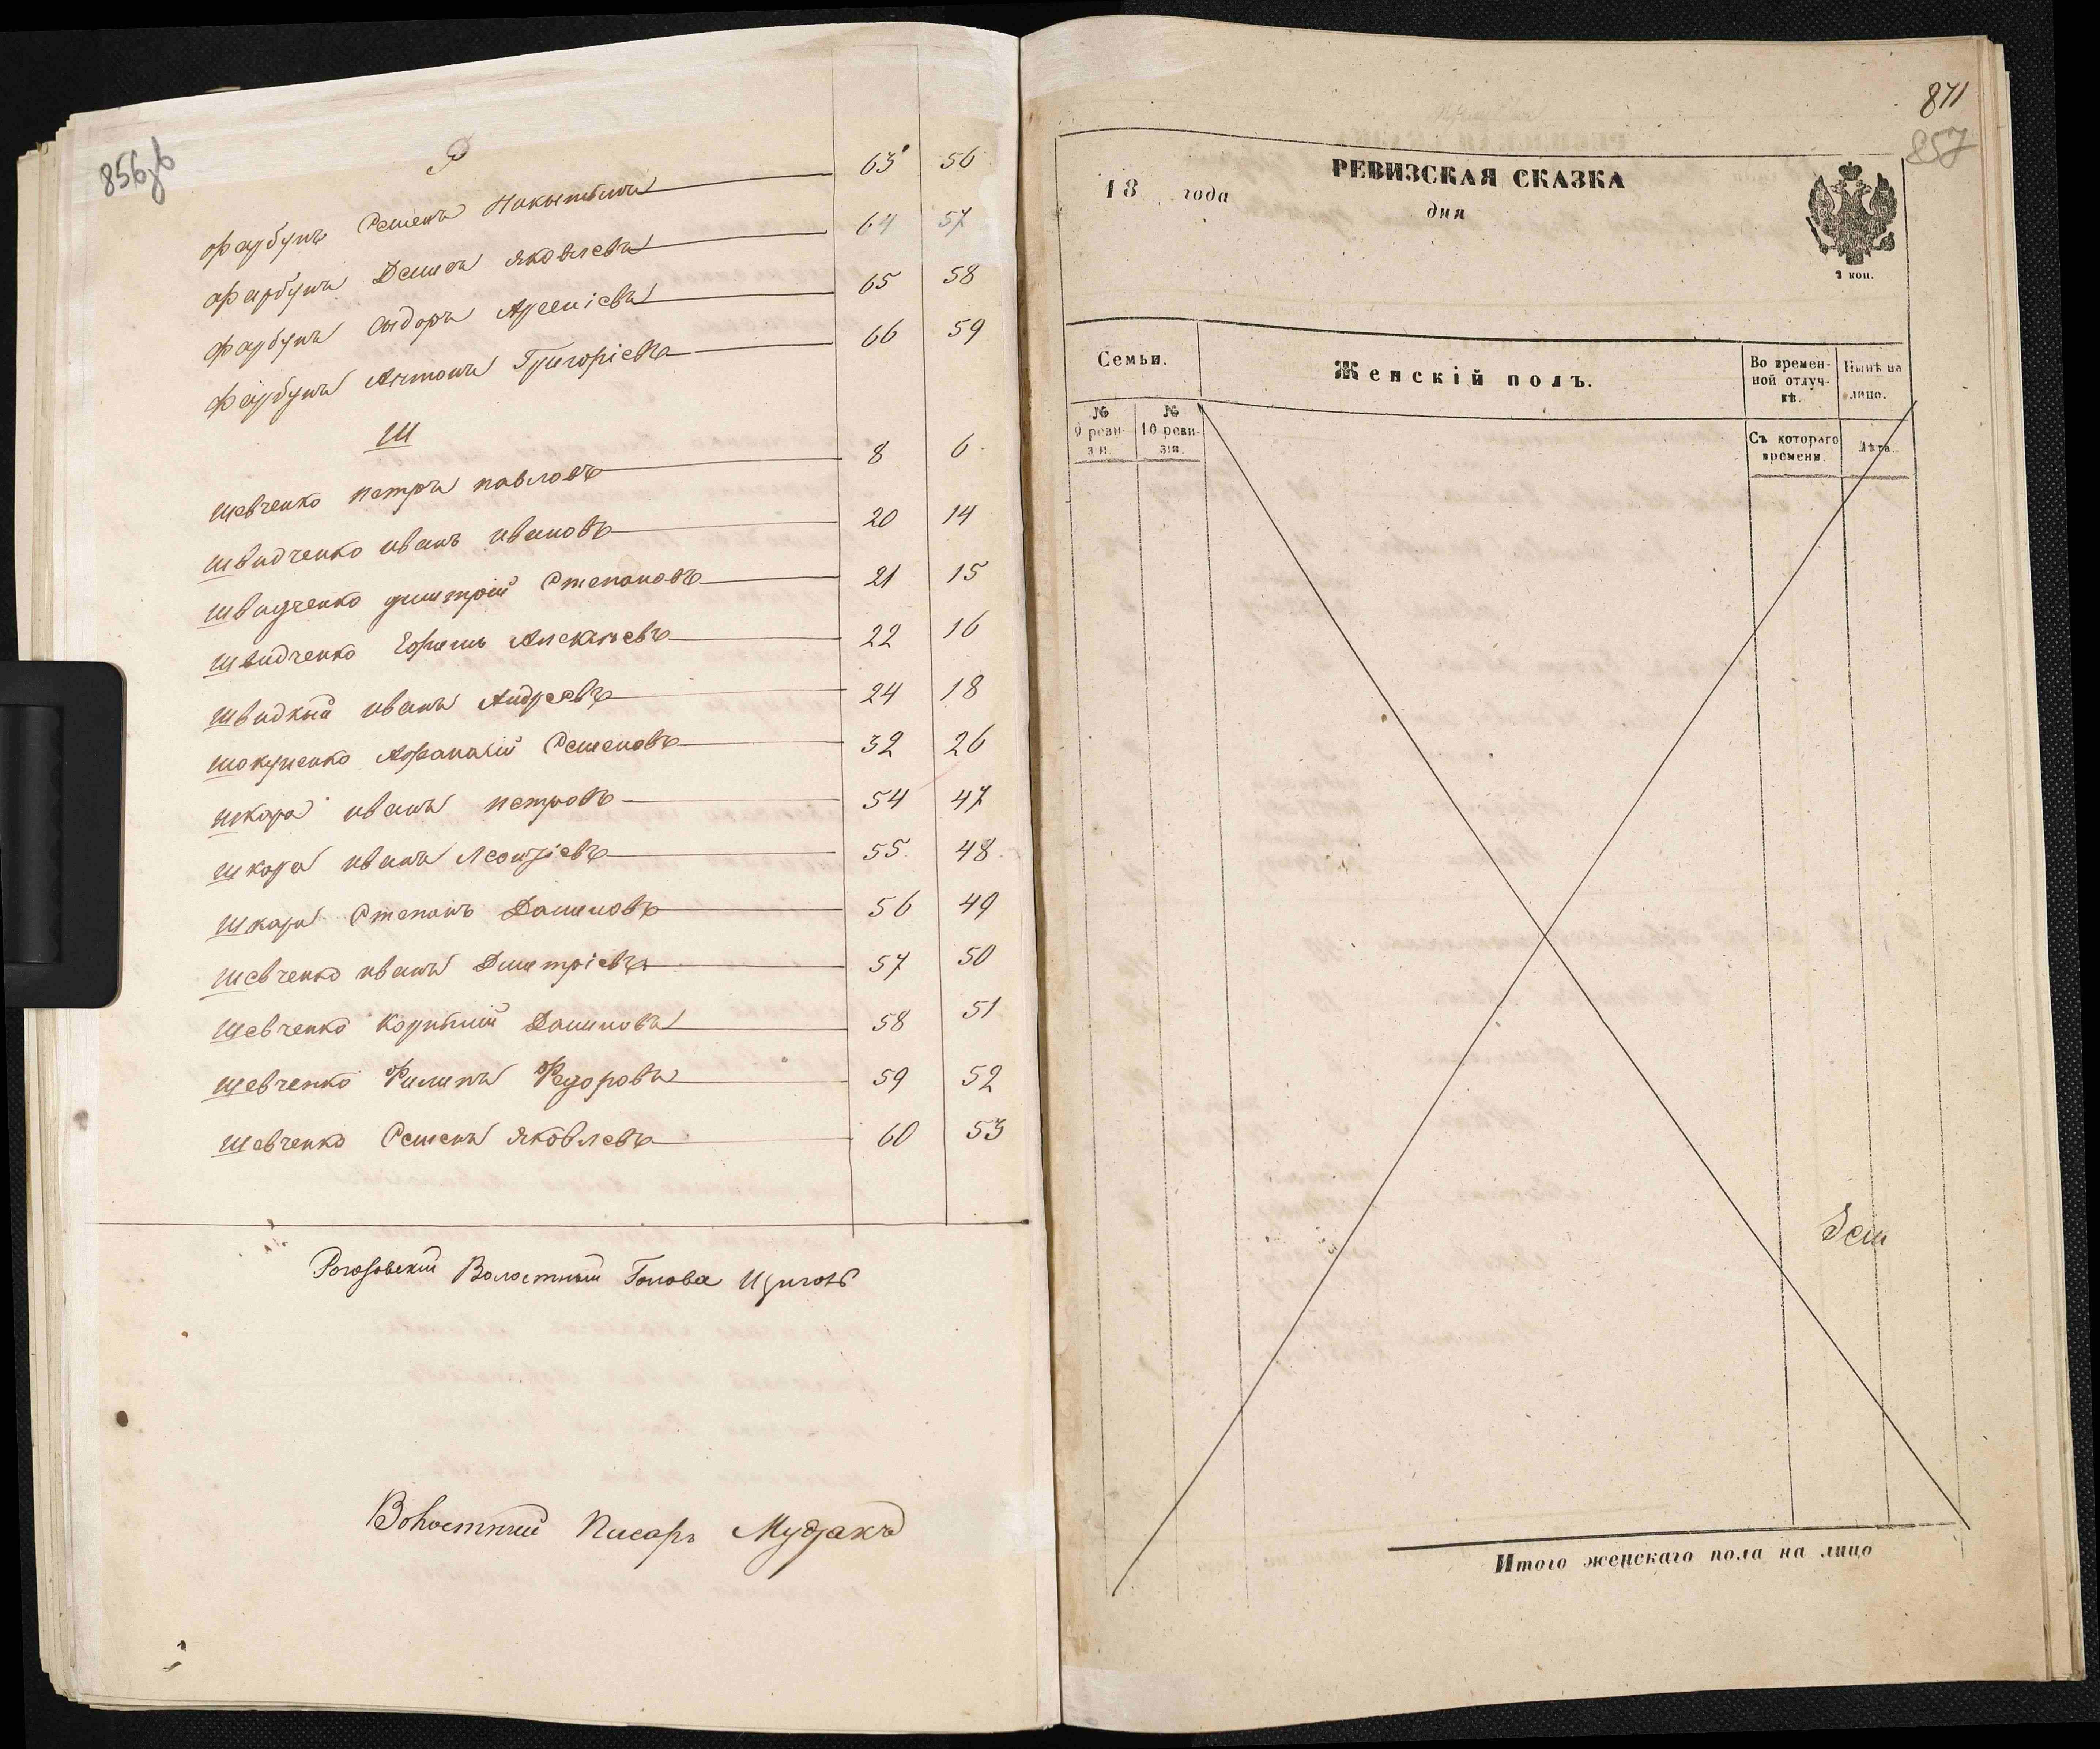 856об
Ф
Фарбунъ Семенъ Никитинъ 63 56
Фарбунъ Демьянъ Яковлевъ 64 57
Фарбунъ Сидоръ Арсеніевъ 65 58
Фарбунъ Антонъ Григоріевъ 66 59
Ш
Шевченко Петръ Павловъ 8 6
Швидченко Иванъ Ивановъ 20 14
Швидченко Дмитрій Степановъ 21 15
Швидченко Ефимъ Алексѣевъ 22 16
Швидкый Иванъ Андреевъ 24 18
Афанасій Семеновъ 32 26
Шкара Иванъ Петровъ 54 47
Шкара Иванъ Леонтіевъ 55 48
Шкара Степанъ Даниловъ 56 49
Шевченко Иванъ Дмитріевъ 57 50
Шевченко Корнѣй Даниловъ 58 51
Шевченко Филипъ Федоровъ 59 52
Шевченко Семенъ Яковлевъ 60 53
Рогозовскій Волостный Голова
Волостный Писарь
871
857
РЕВИЗСКАЯ СКАЗКА
18 года дня
2 коп.
Семьи.
Женскій полъ.
Во времен-
ной отлуч-
кѣ.
Нынѣ на
лицо.
№
9 реви-
зіи.
№
10 реви-
зія.
Съ котораго
времени.
Лѣта.
Итого женскаго пола на лицо